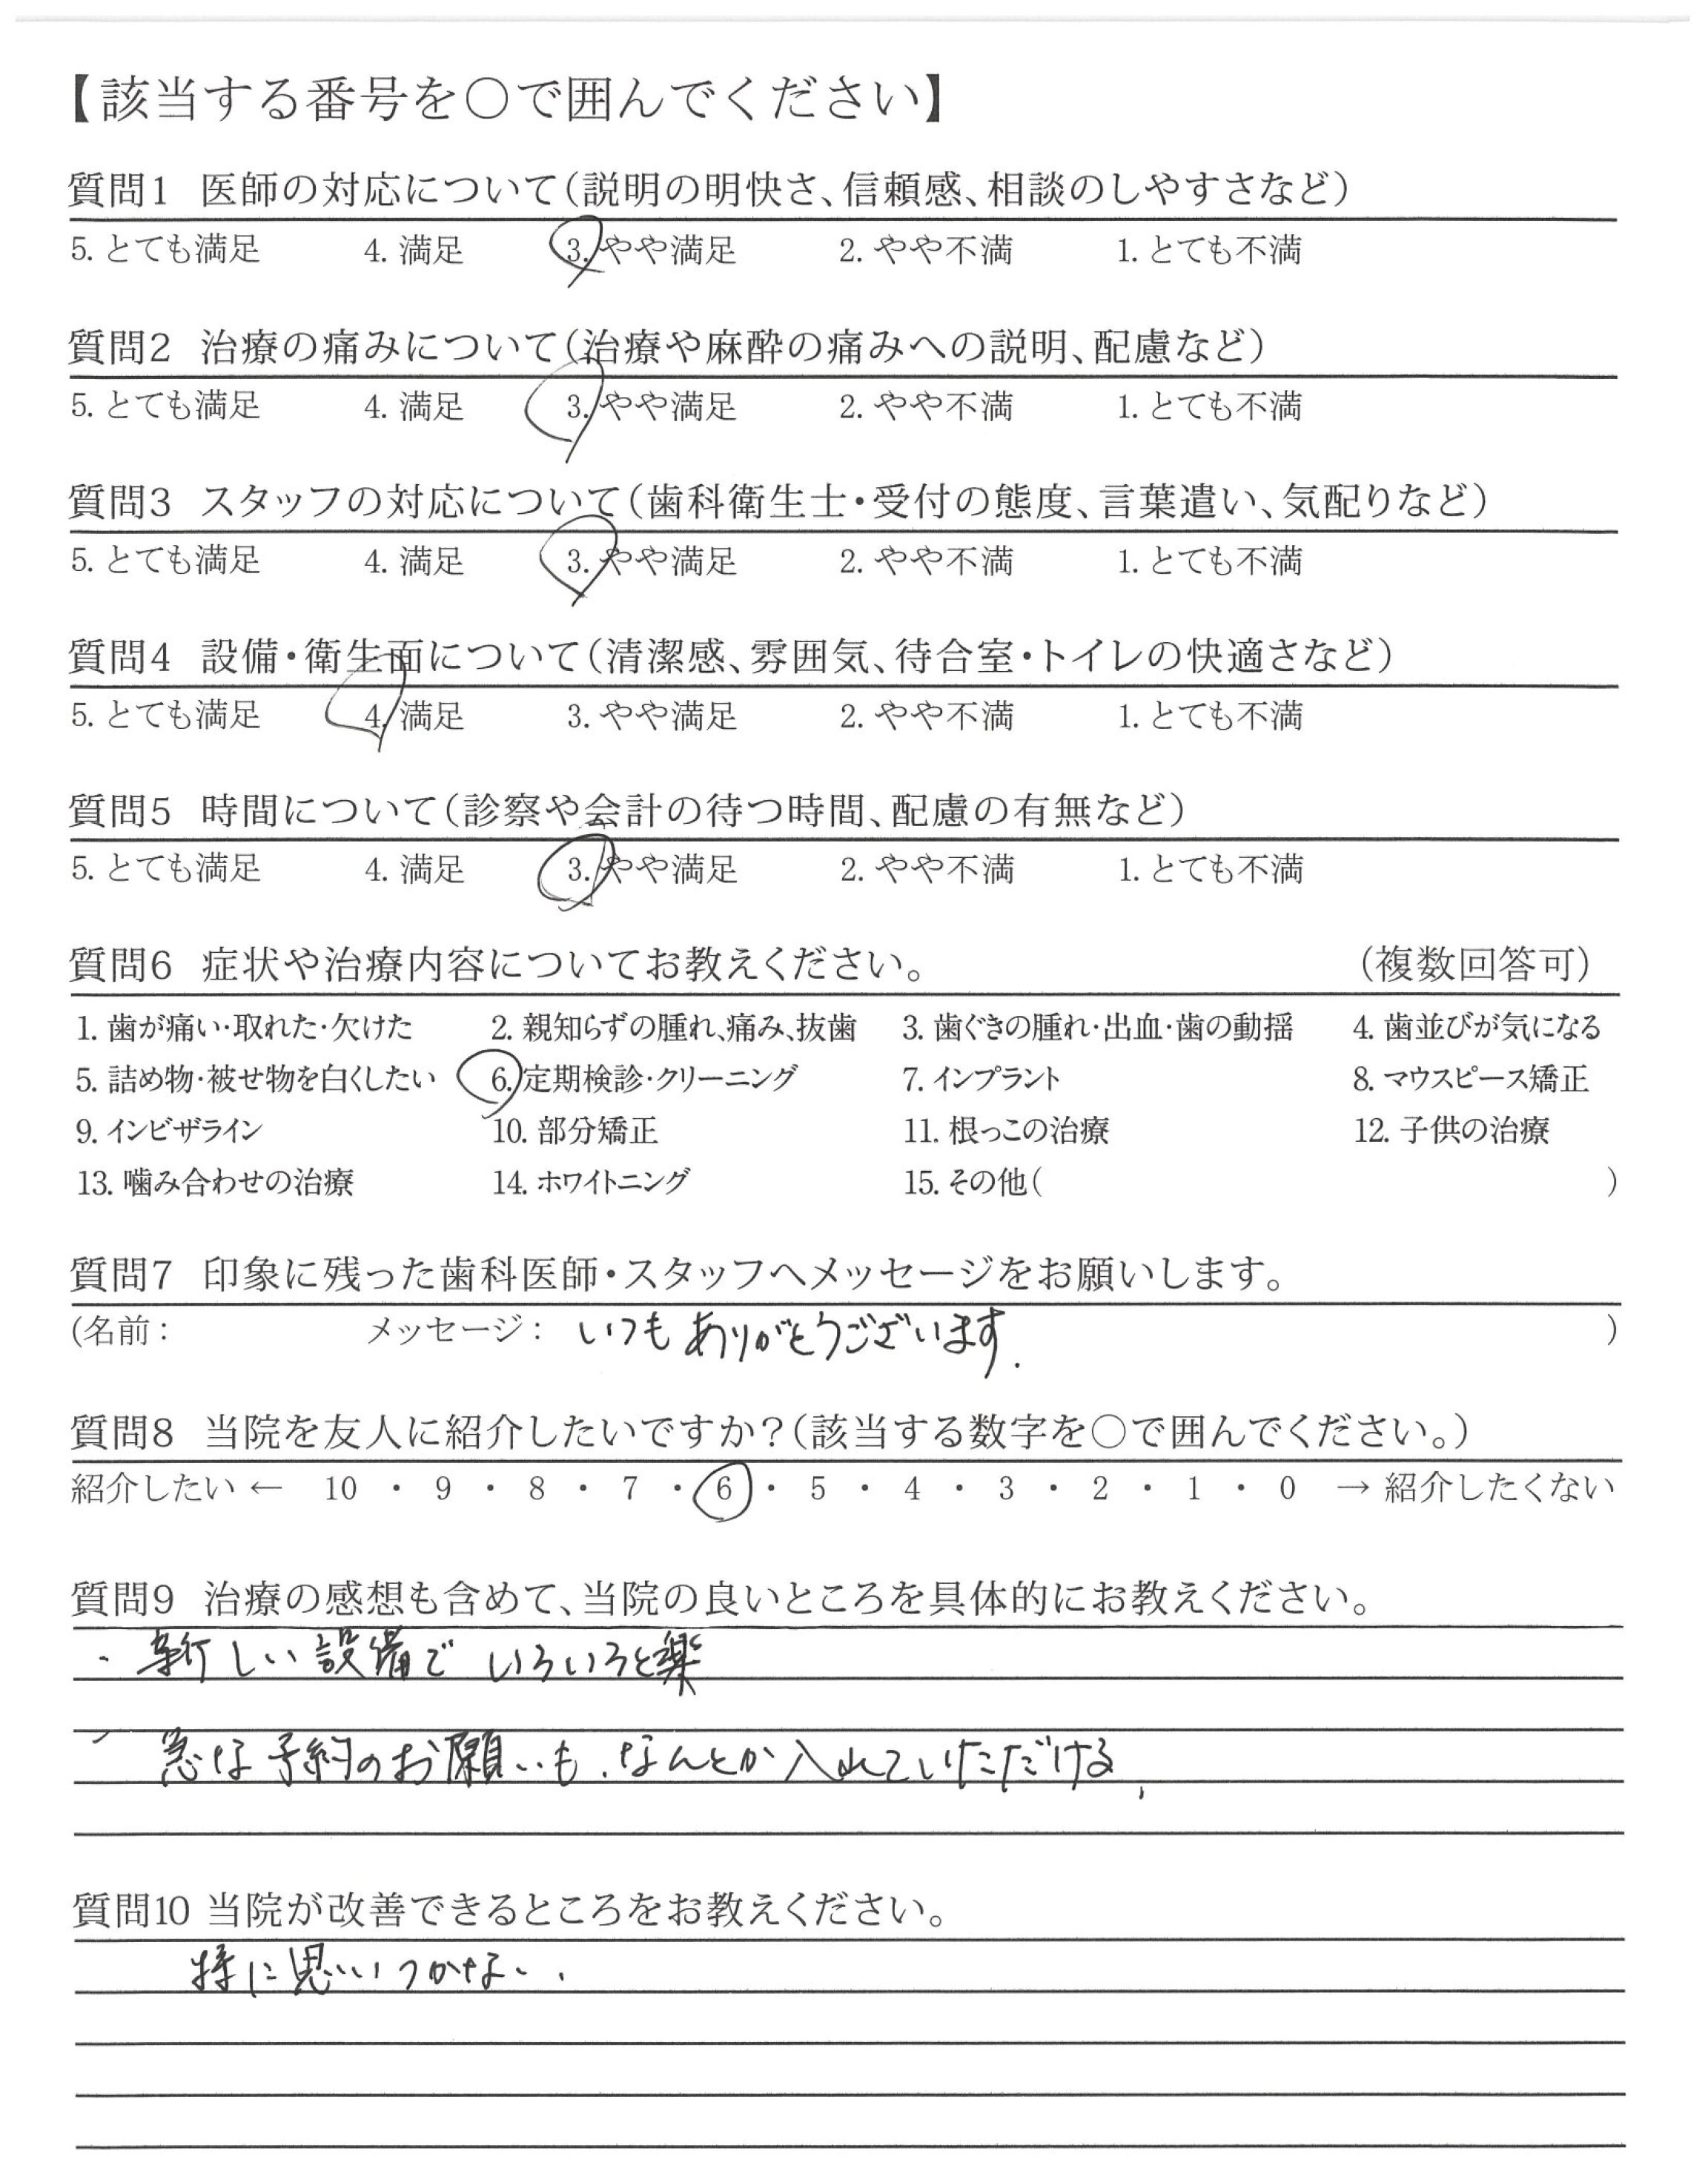 【該当する番号を○で囲んでください】
質問1 医師の対応について(説明の明快さ、信頼感、相談のしやすさなど)
5. とても満足 4. 満足 3. やや満足 2. やや不満 1. とても不満
質問2 治療の痛みについて(治療や麻酔の痛みへの説明、配慮など)
5. とても満足 4. 満足 3. やや満足 2. やや不満 1. とても不満
質問3 スタッフの対応について(歯科衛生士・受付の態度、言葉遣い、気配りなど)
5. とても満足 4. 満足 3. やや満足 2. やや不満 1. とても不満
質問4 設備・衛生面について(清潔感、雰囲気、待合室・トイレの快適さなど)
5. とても満足 4. 満足 3. やや満足 2. やや不満 1. とても不満
質問5 時間について(診察や会計の待つ時間、配慮の有無など)
5. とても満足 4. 満足 3. やや満足 2. やや不満 1. とても不満
質問6 症状や治療内容についてお教えください。 (複数回答可)
1. 歯が痛い・取れた・欠けた 2. 親知らずの腫れ、痛み、抜歯 3. 歯ぐきの腫れ・出血・歯の動揺 4. 歯並びが気になる
5. 詰め物・被せ物を白くしたい 6. 定期検診・クリーニング 7. インプラント 8. マウスピース矯正
9. インビザライン 10. 部分矯正 11. 根っこの治療 12. 子供の治療
13. 噛み合わせの治療 14. ホワイトニング 15. その他( )
質問7 印象に残った歯科医師・スタッフへメッセージをお願いします。
(名前: メッセージ: いつもありがとうございます. )
質問8 当院を友人に紹介したいですか?(該当する数字を○で囲んでください。)
紹介したい ← 10 ・ 9 ・ 8 ・ 7 ・ 6 ・ 5 ・ 4 ・ 3 ・ 2 ・ 1 ・ 0 → 紹介したくない
質問9 治療の感想も含めて、当院の良いところを具体的にお教えください。
・新しい設備でいろいろと楽
・急な予約のお願いも、なんとか入れていただける、
質問10 当院が改善できるところをお教えください。
特に思いつかない、